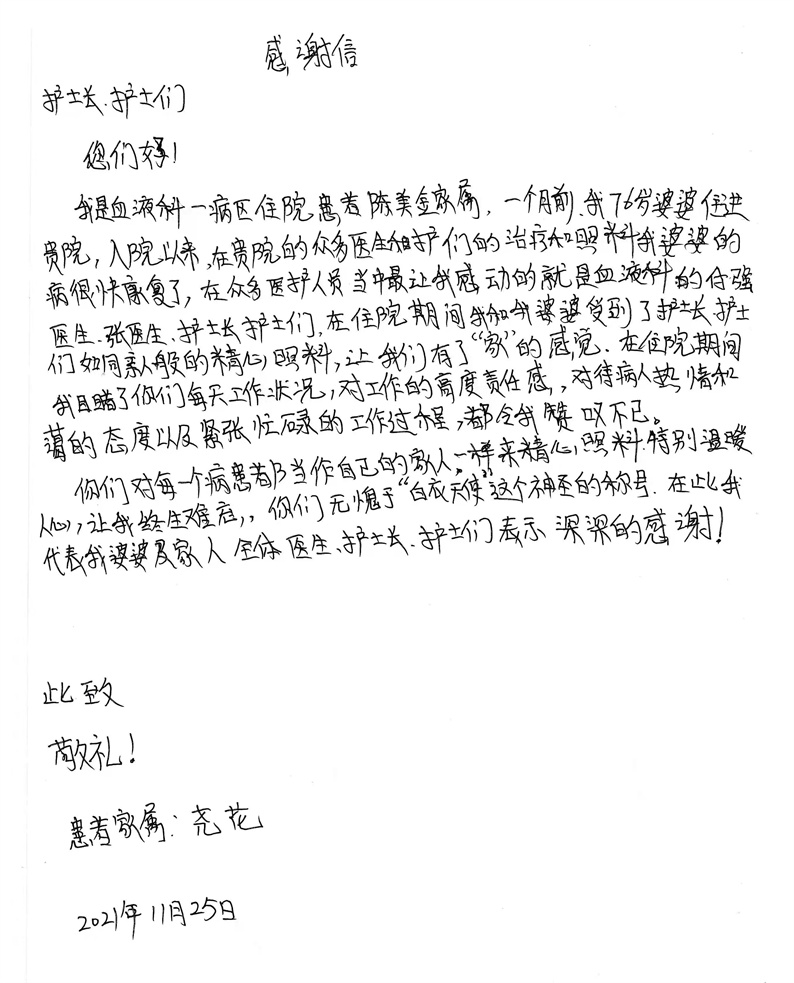 感谢信
护士长、护士们
您们好!
我是血液科一病区住院患者陈美金家属,一个月前,我76岁婆婆住进
贵院,入院以来,在贵院的众多医生和护们的治疗和照料我婆婆的
病很快康复了,在众多医护人员当中最让我感动的就是血液科的任强
医生、张医生、护士长护士们,在住院期间我和我婆婆受到了护士长护士
们如同亲人般的精心照料,让我们有了“家”的感觉.在住院期间
我目睹了你们每天工作状况,对工作的高度责任感,对待病人热情和
蔼的态度以及紧张忙碌的工作过程,都令我赞叹不已。
你们对每一个病患者都当作自己的家人一样来精心照料.特别温暖
人心,让我终生难忘,你们无愧于“白衣天使”这个神圣的称号.在此我
代表我婆婆及家人全体医生、护士长、护士们表示深深的感谢!
此致
敬礼!
患者家属:尧花
2021年11月25日